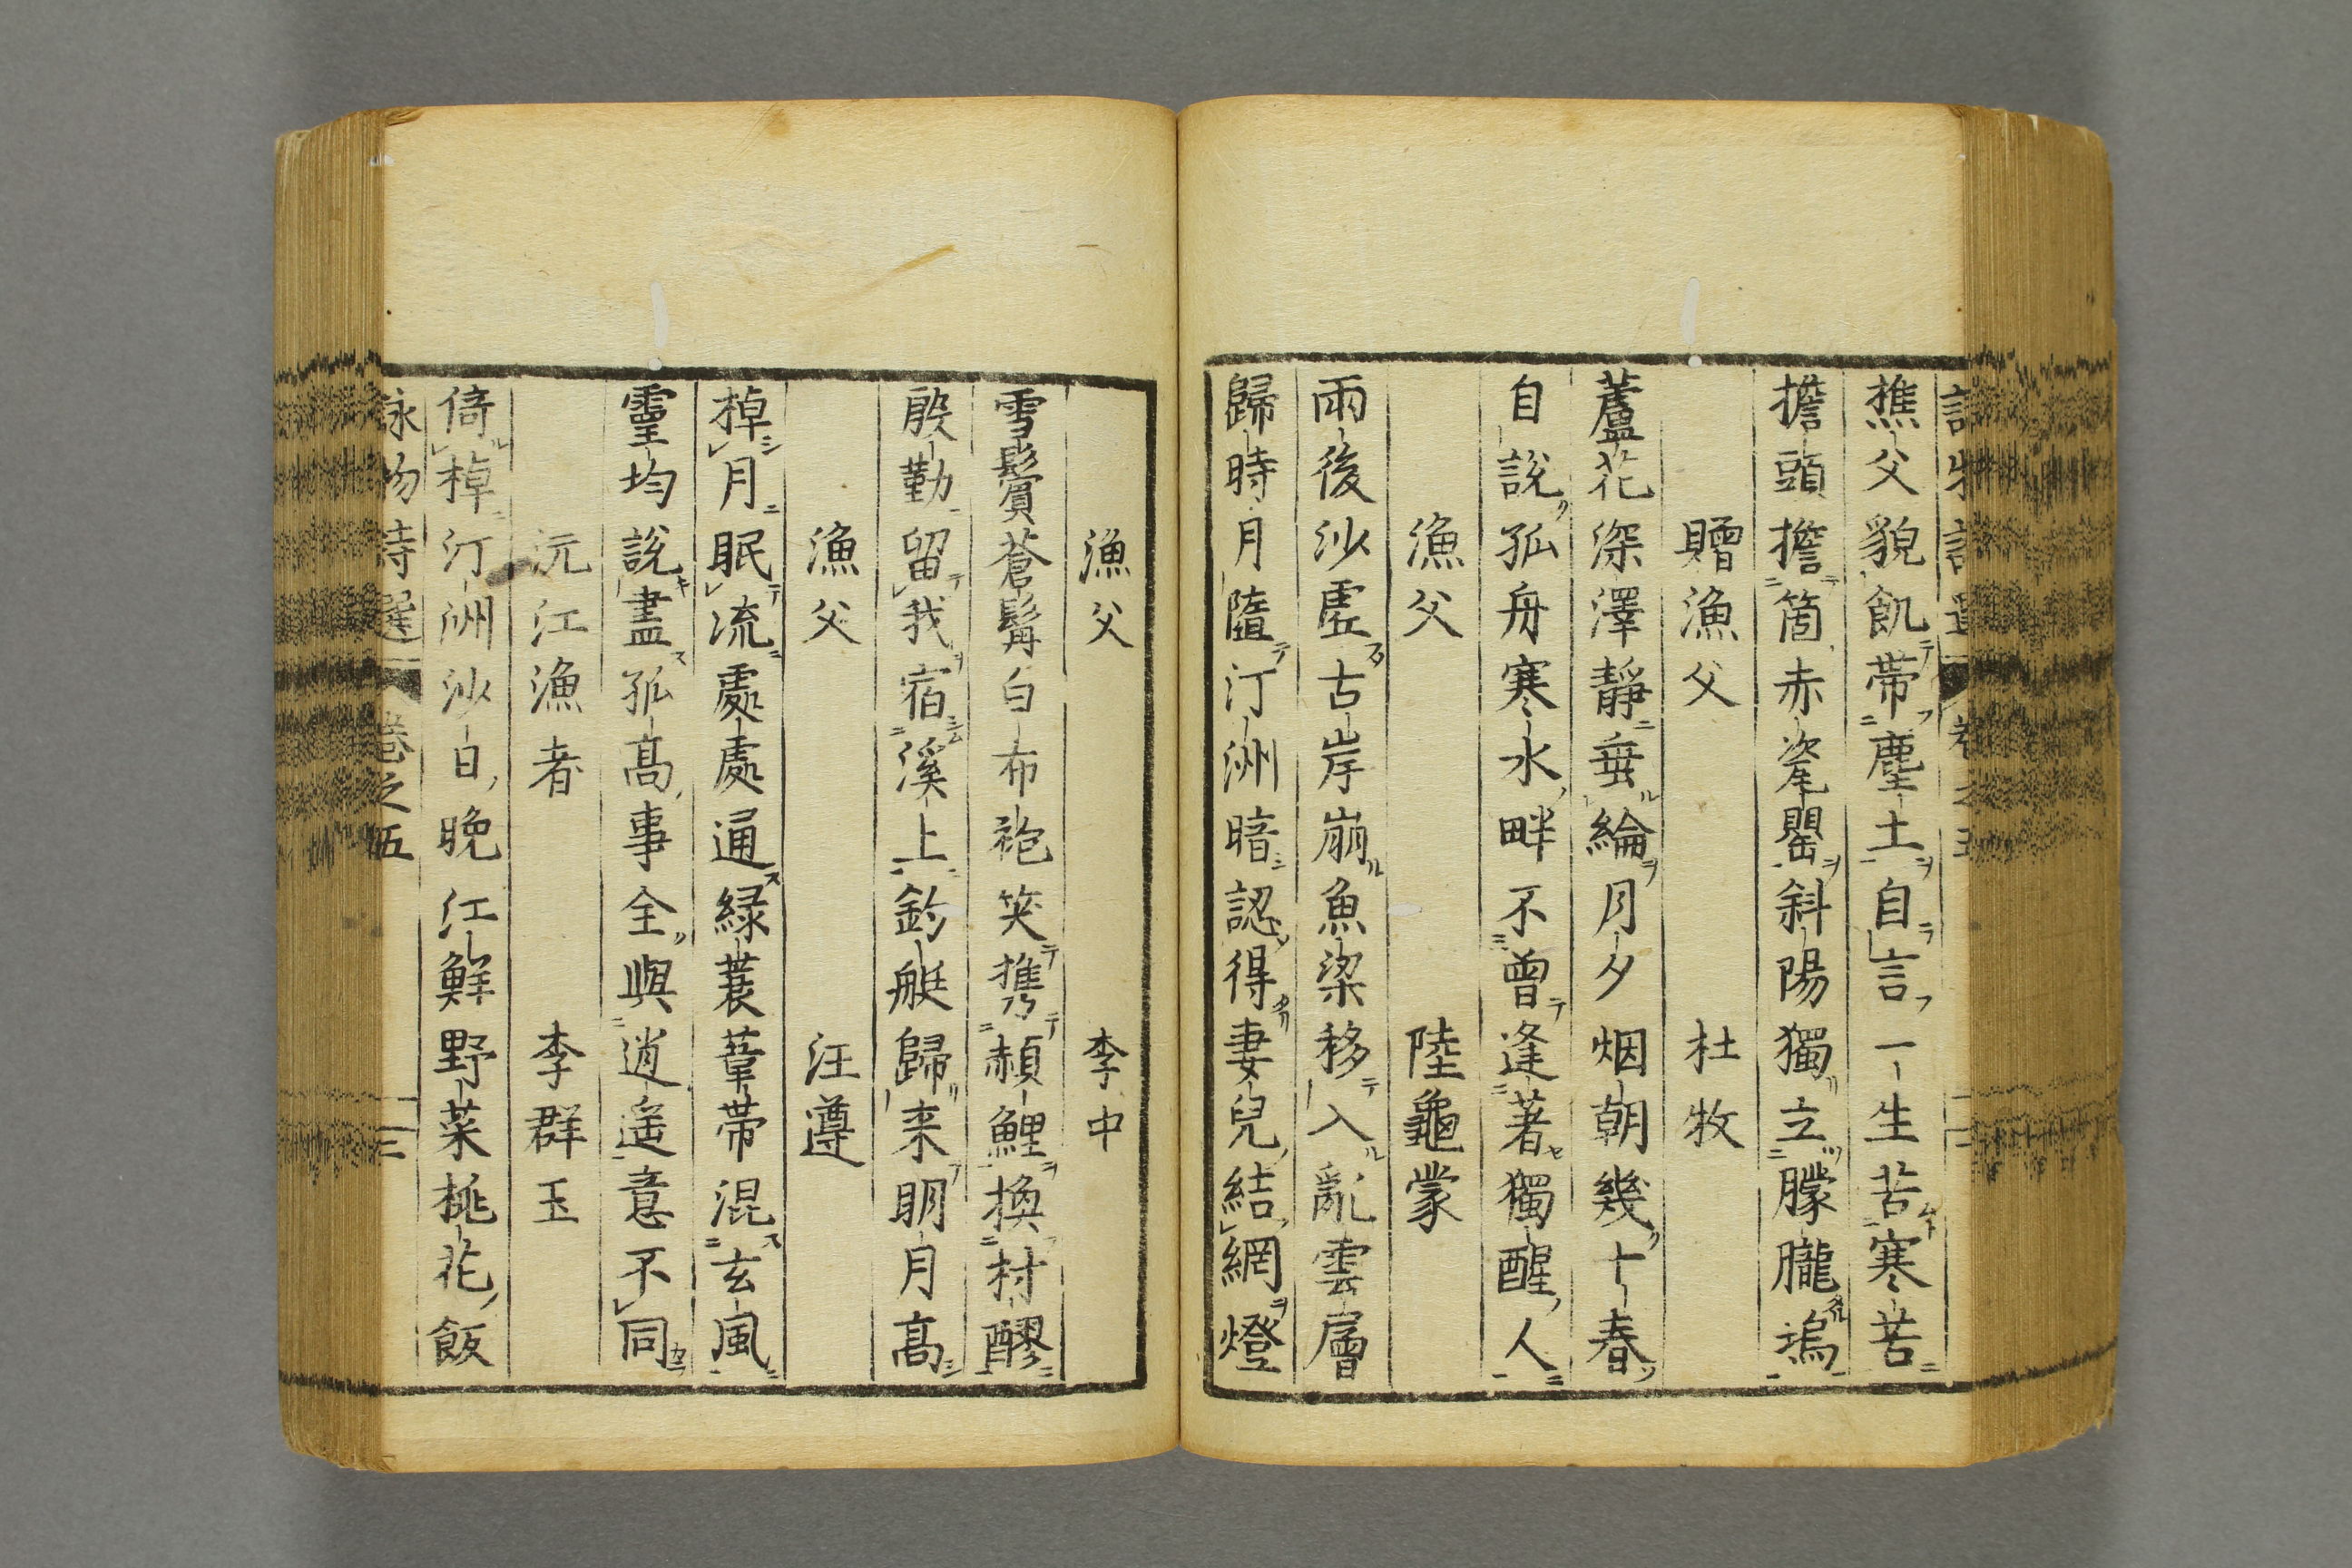 樵父貌飢帯塵土自言一生苦寒苦
擔頭擔箇赤瓷罌斜陽獨立朦朧塢
贈漁父 杜牧
蘆花深澤靜垂綸月夕烟朝幾十春
自說孤舟寒水畔不曾逢著獨醒人
漁父 陸龜蒙
雨後沙虛古岸崩魚梁移入亂雲層
歸時月墮汀洲暗認得妻兒結網燈
漁父 李中
雪鬢蒼髯白布袍笑携赬鯉換村醪
殷勤留我宿溪上釣艇歸来明月高
漁父 汪遵
棹月眠流處處通緑蓑葦帯混玄風
靈均說盡孤高事全與逍遥意不同
沅江漁者 李群玉
倚棹汀洲沙日晚江鮮野菜桃花飯
詠物詩選 卷之五